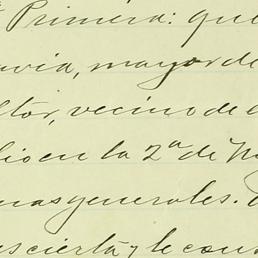 Primera: que
avia, mayor de
ltor, vecino de
lio en la 2ª de
mas generales.
es cierta y le cons